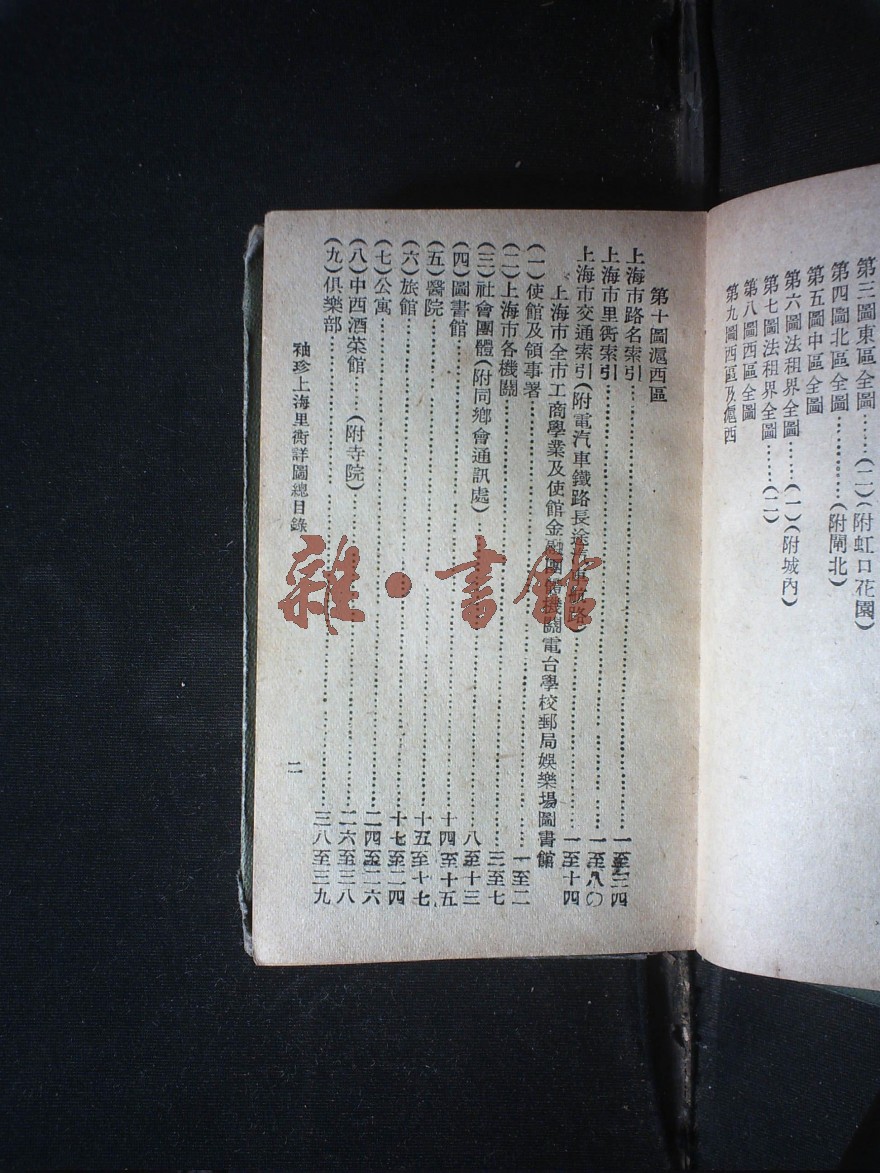 第三圖東區全圖……(二)(附虹口花園)
第四圖北區全圖……(附閘北)
第五圖中區全圖
第六圖法租界全圖……(一)(附城內)
第七圖法租界全圖……(二)
第八圖西區全圖
第九圖西區及滬西
第十圖滬西區
上海市路名索引……一至三四
上海市里衖索引……一至八〇
上海市交通索引(附電汽車鐵路長途汽車航路)……一至十四
上海市全市工商學業及使館金融團體機關電台學校郵局娛樂場圖書館
(一)使館及領事署……一至二
(二)上海市各機關……三至七
(三)社會團體(附同鄉會通訊處)……八至十三
(四)圖書館……十四至十五
(五)醫院……十五至十七
(六)旅館……十七至二四
(七)公寓……二四至二六
(八)中西酒菜館……(附寺院)……二六至三八
(九)俱樂部……三八至三九
袖珍上海里衖詳圖總目錄
二
雜·書館